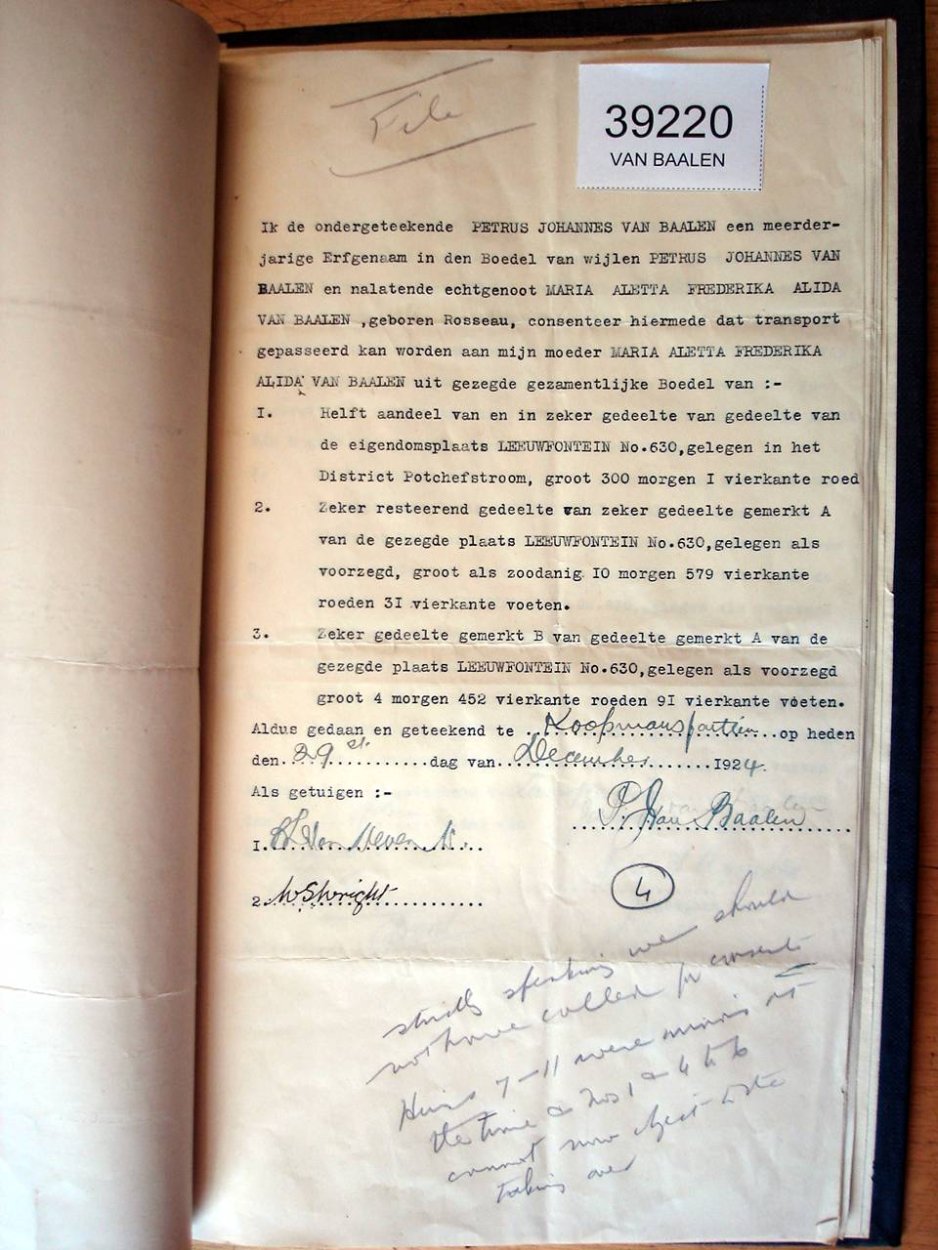 File
39220
VAN BAALEN
Ik de ondergeteekende PETRUS JOHANNES VAN BAALEN een meerder-
jarige Erfgenaam in den Boedel van wijlen PETRUS JOHANNES VAN
BAALEN en nalatende echtgenoot MARIA ALETTA FREDERIKA ALIDA
VAN BAALEN ,geboren Rosseau, consenteer hiermede dat transport
gepasseerd kan worden aan mijn moeder MARIA ALETTA FREDERIKA
ALIDA VAN BAALEN uit gezegde gezamentlijke Boedel van :-
I. Helft aandeel van en in zeker gedeelte van gedeelte van
de eigendomsplaats LEEUWFONTEIN No.630,gelegen in het
District Potchefstroom, groot 300 morgen I vierkante roed
2. Zeker resteerend gedeelte van zeker gedeelte gemerkt A
van de gezegde plaats LEEUWFONTEIN No.630,gelegen als
voorzegd, groot als zoodanig IO morgen 579 vierkante
roeden 3I vierkante voeten.
3. Zeker gedeelte gemerkt B van gedeelte gemerkt A van de
gezegde plaats LEEUWFONTEIN No.630,gelegen als voorzegd
groot 4 morgen 452 vierkante roeden 9I vierkante voeten.
Aldus gedaan en geteekend te Koopmansfontein op heden
den 29st dag van December 1924.
Als getuigen :-
P. J. van Baalen
I.
2. W S Wright
4
strictly speaking we should
not have called for consents
Heirs 7-11 were minors at
the time & Nos 1 & 4 to 6
cannot now object to the
taking over